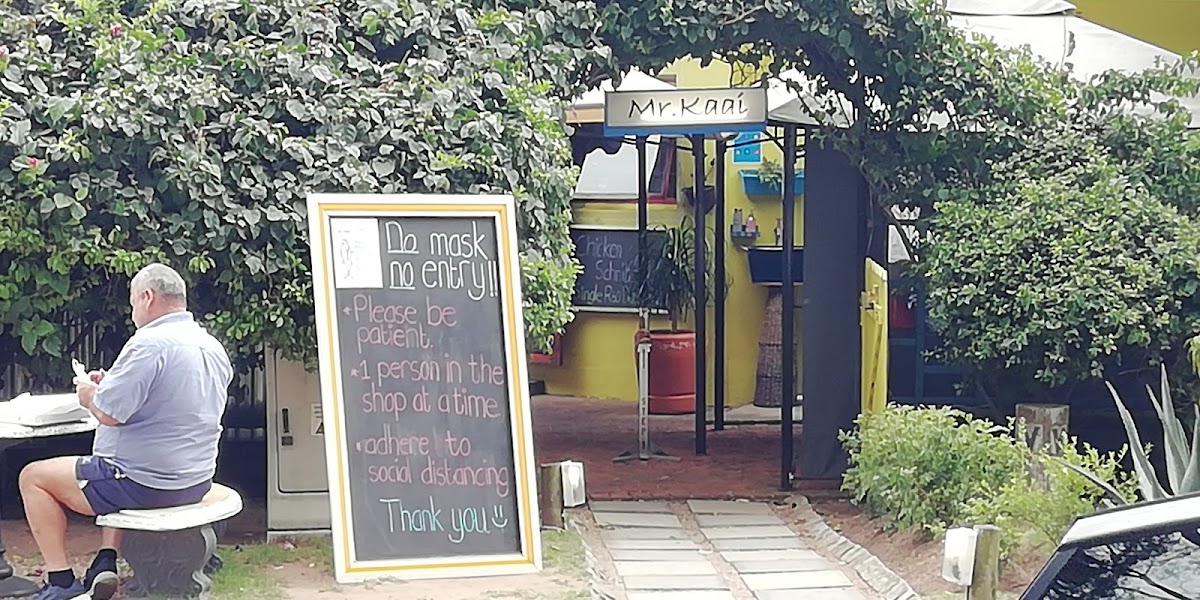 Mr. Kaai
No mask
no entry!!
*Please be
patient.
*1 person in the
shop at a time
*adhere to
social distancing
Thank you
Chicken
Schni